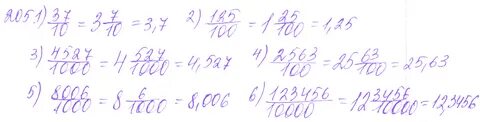 2051) 37/10 = 3 7/10 = 3,7 2) 125/100 = 1 25/100 = 1,25
3) 4527/1000 = 4 527/1000 = 4,527 4) 2563/100 = 25 63/100 = 25,63
5) 8006/1000 = 8 6/1000 = 8,006 6) 123456/10000 = 12 3456/10000 = 12,3456